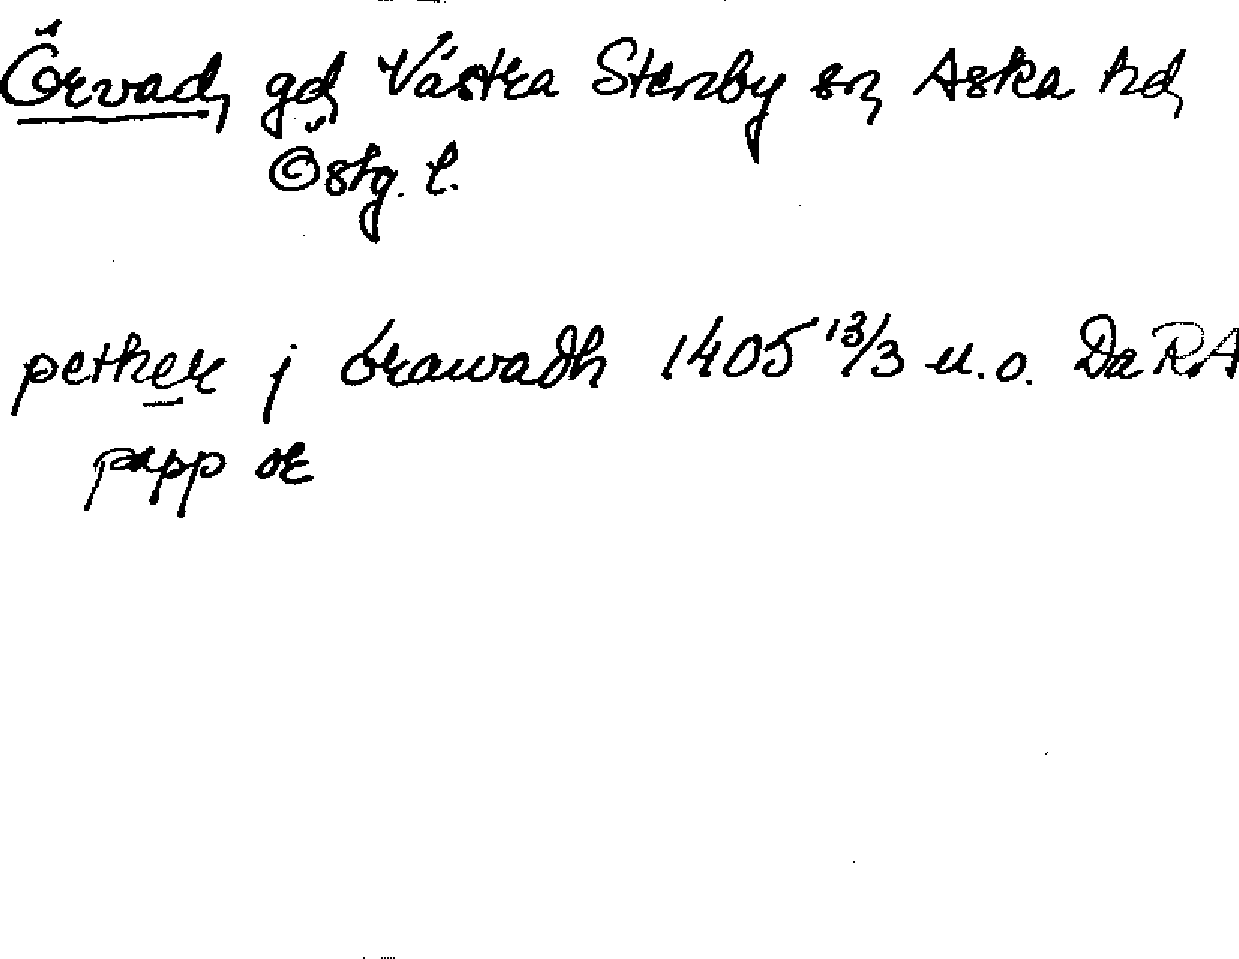 Örvad, gd, Västra Stenby sn, Aska hd,
Östg. l.
pether j örawadh 1405 13/3 u.o. Da RA
papp or